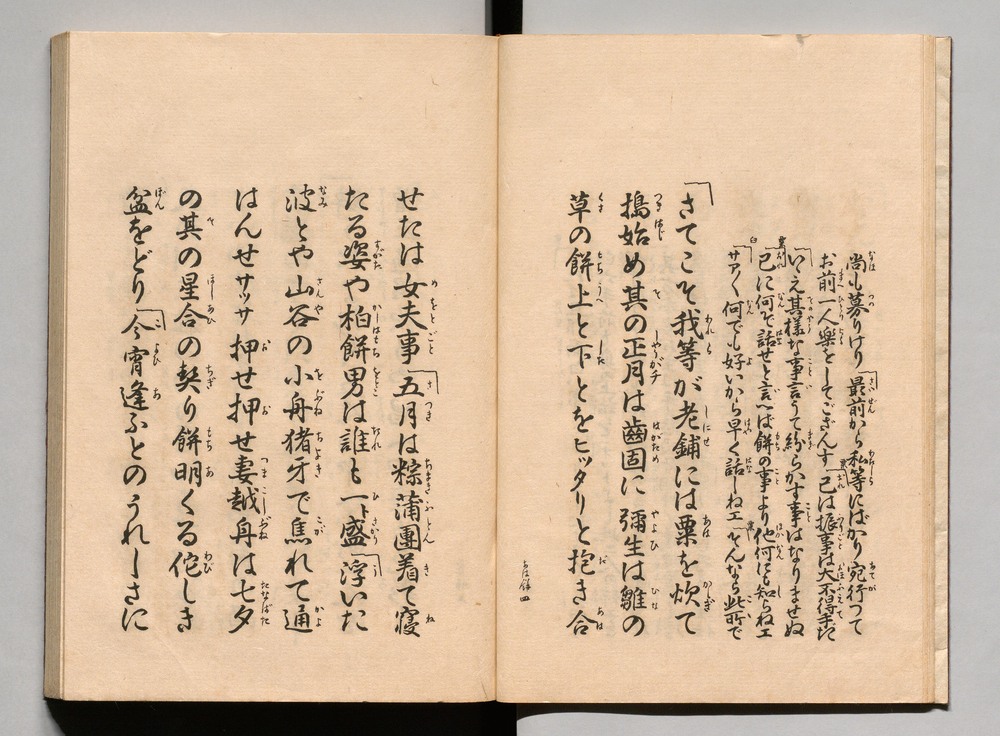 尚も募りけり「最前から私等にばかり宛行つて
お前一人樂をしてござんす「己は振事は大不得手だ
「いゝえ其樣な事言うて紛らかす事はなりませぬ
「己に何を話せと言へば餅の事より他何にも知らねエ
「サア〳〵何でも好いから早く話しねエ「そんなら此所で
「さてこそ我等が老鋪には粟を炊て
搗始め其の正月は齒固に彌生は雛の
草の餅上と下とをヒッタリと抱き合
あは餅 四
せたは女夫事「五月は粽蒲團着て寢
たる姿や柏餅男は誰も一ト盛「浮いた
波とや山谷の小舟猪牙で焦れて通
はんせサッサ押せ押せ妻越舟は七夕
の其の星合の契り餅明くる侘しき
盆をどり「今宵逢ふとのうれしさに